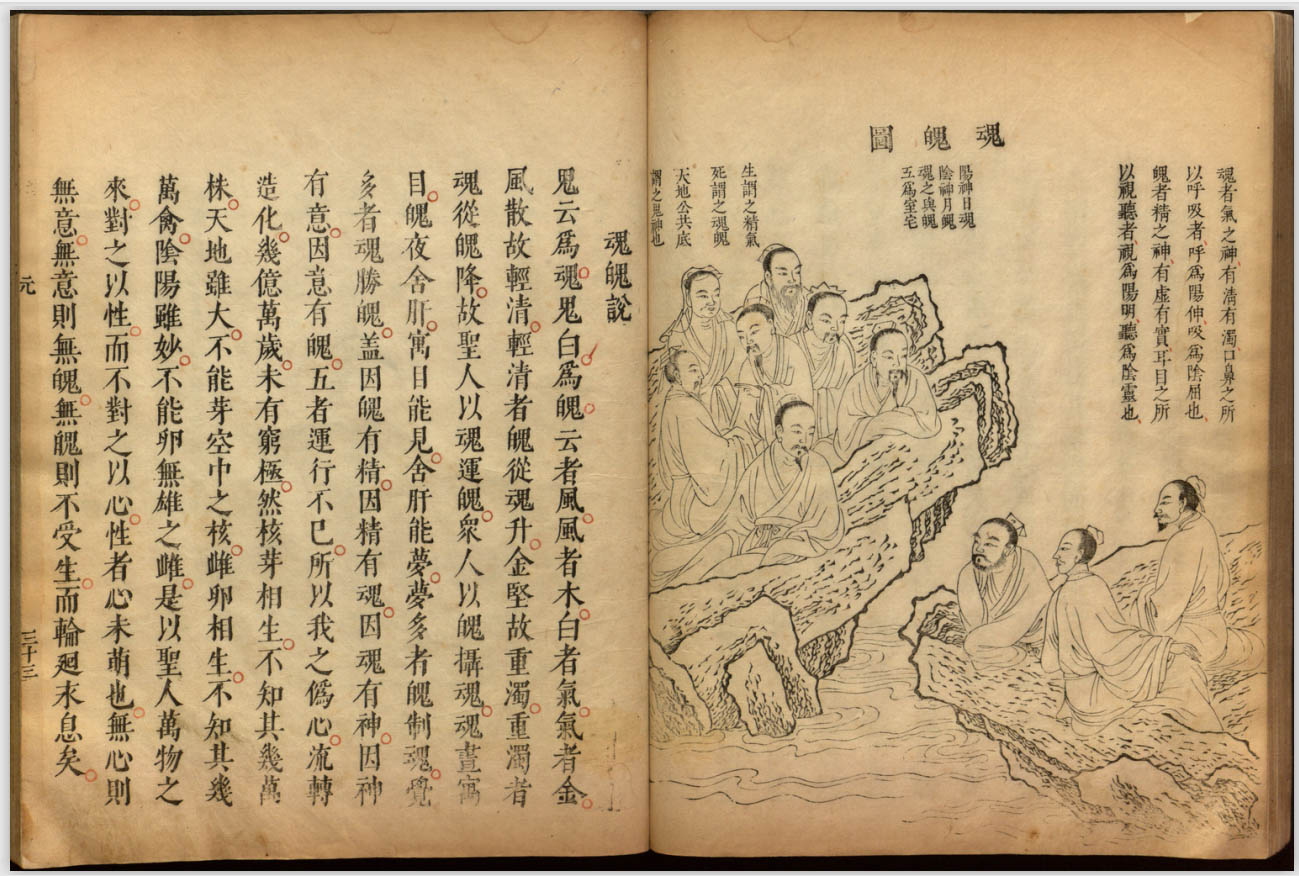 魂魄圖
魂者氣之神有清有濁口鼻之所
以呼吸者呼爲陽伸吸爲陰屈也
魄者精之神有虛有實耳目之所
以視聽者視爲陽明聽爲陰靈也
陽神日魂
陰神月魄
魂之與魄
互爲室宅
生謂之精氣
死謂之魂魄
天地公共底
謂之鬼神也
魂魄說
鬼云爲魂鬼白爲魄云者風風者木白者氣氣者金
風散故輕清輕清者魄從魂升金堅故重濁重濁者
魂從魄降故聖人以魂運魄衆人以魄攝魂魂晝寓
目魄夜舍肝寓目能見舍肝能夢夢多者魄制魂覺
多者魂勝魄盖因魄有精因精有魂因魂有神因神
有意因意有魄五者運行不已所以我之僞心流轉
造化幾億萬歲未有窮極然核芽相生不知其幾萬
株天地雖大不能芽空中之核雌卵相生不知其幾
萬禽陰陽雖妙不能卵無雄之雌是以聖人萬物之
來對之以性而不對之以心性者心未萌也無心則
無意無意則無魄無魄則不受生而輪廻永息矣
元
三十三